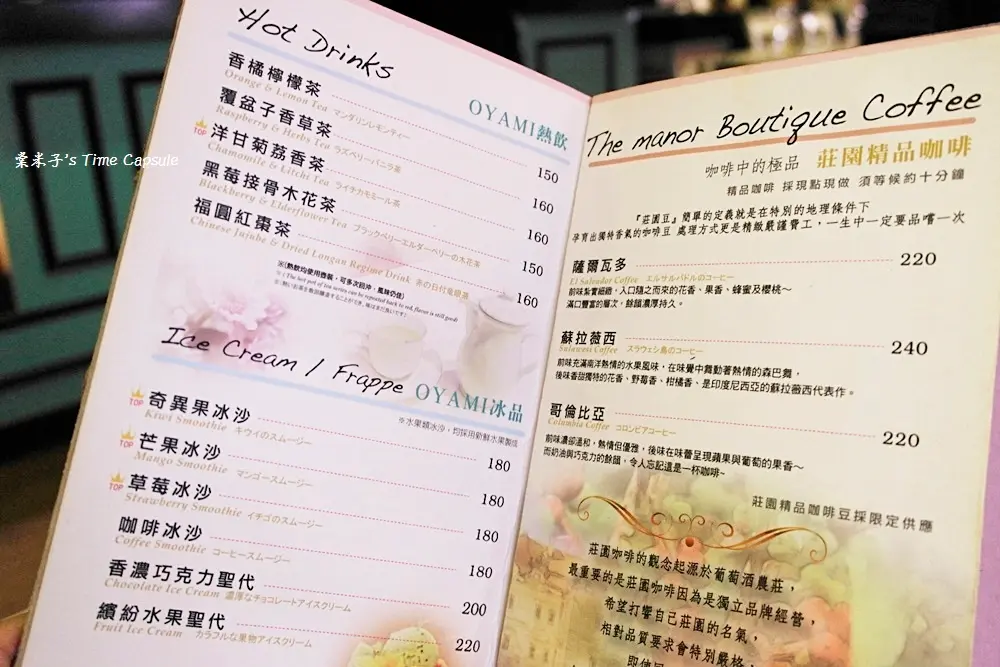 Hot Drinks
OYAMI熱飲
香橘檸檬茶 150
Orange & Lemon Tea マンダリンレモンティー
覆盆子香草茶 160
Raspberry & Herbs Tea ラズベリーバニラ茶
TOP 洋甘菊荔香茶 160
Chamomile & Litchi Tea ライチカモミール茶
黑莓接骨木花茶 150
Blackberry & Elderflower Tea ブラックベリーエルダーベリーの木花茶
福圓紅棗茶 160
Chinese Jujube & Dried Longan Regime Drink 茶の日付竜眼茶
※(熱飲均使用壺裝，可多次回沖，風味仍佳)
Ice Cream / Frappe
OYAMI冰品
※水果類冰沙，均採用新鮮水果製成
TOP 奇異果冰沙 180
Kiwi Smoothie キウイのスムージー
TOP 芒果冰沙 180
Mango Smoothie マンゴースムージー
TOP 草莓冰沙 180
Strawberry Smoothie イチゴのスムージー
咖啡冰沙 180
Coffee Smoothie コーヒースムージー
香濃巧克力聖代 200
Chocolate Ice Cream 濃厚なチョコレートアイスクリーム
繽紛水果聖代 220
Fruit Ice Cream カラフルな果物アイスクリーム
The manor Boutique Coffee
咖啡中的極品 莊園精品咖啡
精品咖啡 採現點現做 須等候約十分鐘
『莊園豆』簡單的定義就是在特別的地理條件下
孕育出獨特香氣的咖啡豆 處理方式更是精緻嚴謹費工，一生中一定要品嚐一次
薩爾瓦多 220
El Salvador Coffee エルサルバドルのコーヒー
前味紮實細緻，入口隨之而來的花香、果香、蜂蜜及櫻桃～
滿口豐富的層次，餘韻濃厚持久。
蘇拉薇西 240
Sulawesi Coffee スラウェシ島のコーヒー
前味充滿南洋熱情的水果風味，在味覺中舞動著熱情的森巴舞，
後味香甜獨特的花香、野莓香、柑橘香、是印度尼西亞的蘇拉薇西代表作。
哥倫比亞 220
Columbia Coffee コロンビアコーヒー
前味濃卻溫和，熱情但優雅，後味在味蕾呈現蘋果與葡萄的果香～
而奶油與巧克力的餘韻，令人忘記這是一杯咖啡~
莊園精品咖啡豆採限定供應
莊園咖啡的觀念起源於葡萄酒農莊，
最重要的是莊園咖啡因為是獨立品牌經營，
希望打響自己莊園的名氣，
相對品質要求會特別嚴格，
栗米子's Time Capsule